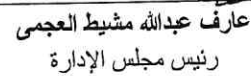 عارف عبدالله مشيط العجمى
رئيس مجلس الإدارة